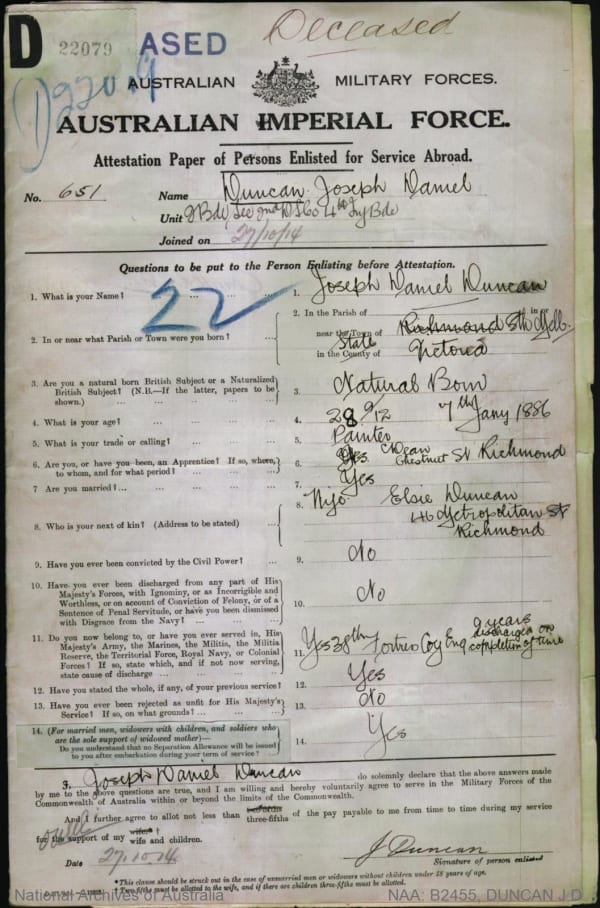 D 22079 ASED Deceased
D22079
AUSTRALIAN MILITARY FORCES.
AUSTRALIAN IMPERIAL FORCE.
Attestation Paper of Persons Enlisted for Service Abroad.
No. 651 Name Duncan Joseph Daniel
Unit 4th Bde
Joined on 27/10/14
Questions to be put to the Person Enlisting before Attestation.
22
1. What is your Name? ... 1. Joseph Daniel Duncan
2. In or near what Parish or Town were you born? ... 2. In the Parish of in or
near the Town of Richmond Sth Melb.
in the County of State Victoria
3. Are you a natural born British Subject or a Naturalized
British Subject? (N.B.—If the latter, papers to be
shown.) ... 3. Natural Born
4. What is your age? ... 4. 28 9/12 7th Jany 1886
5. What is your trade or calling? ... 5. Painter
6. Are you, or have you been, an Apprentice? If so, where,
to whom, and for what period? ... 6. Yes Dean Chestnut St Richmond
7. Are you married? ... 7. Yes
8. Who is your next of kin? (Address to be stated) ... 8. Elsie Duncan
46 Metropolitan St
Richmond
9. Have you ever been convicted by the Civil Power? ... 9. No
10. Have you ever been discharged from any part of His
Majesty's Forces, with Ignominy, or as Incorrigible and
Worthless, or on account of Conviction of Felony, or of a
Sentence of Penal Servitude, or have you been dismissed
with Disgrace from the Navy? ... 10. No
11. Do you now belong to, or have you ever served in, His
Majesty's Army, the Marines, the Militia, the Militia
Reserve, the Territorial Force, Royal Navy, or Colonial
Forces? If so, state which, and if not now serving,
state cause of discharge ... 11. Yes 38th Fortress Coy Eng 9 years
discharged on
completion of time
12. Have you stated the whole, if any, of your previous service? 12. Yes
13. Have you ever been rejected as unfit for His Majesty's
Service? If so, on what grounds? ... 13. No
14. (For married men, widowers with children, and soldiers who
are the sole support of widowed mother)—
Do you understand that no Separation Allowance will be issued
to you after embarkation during your term of service? 14. Yes
I, Joseph Daniel Duncan do solemnly declare that the above answers made
by me to the above questions are true, and I am willing and hereby voluntarily agree to serve in the Military Forces of the
Commonwealth of Australia within or beyond the limits of the Commonwealth.
And I further agree to allot not less than two-fifths three-fifths of the pay payable to me from time to time during my service
for the support of my wife† wife and children.
Date 27.10.14 J Duncan
Signature of person enlisted
*This clause should be struck out in the case of unmarried men or widowers without children under 18 years of age.
†Two-fifths must be allotted to the wife, and if there are children three-fifths must be allotted.
National Archives of Australia NAA: B2455, DUNCAN J D